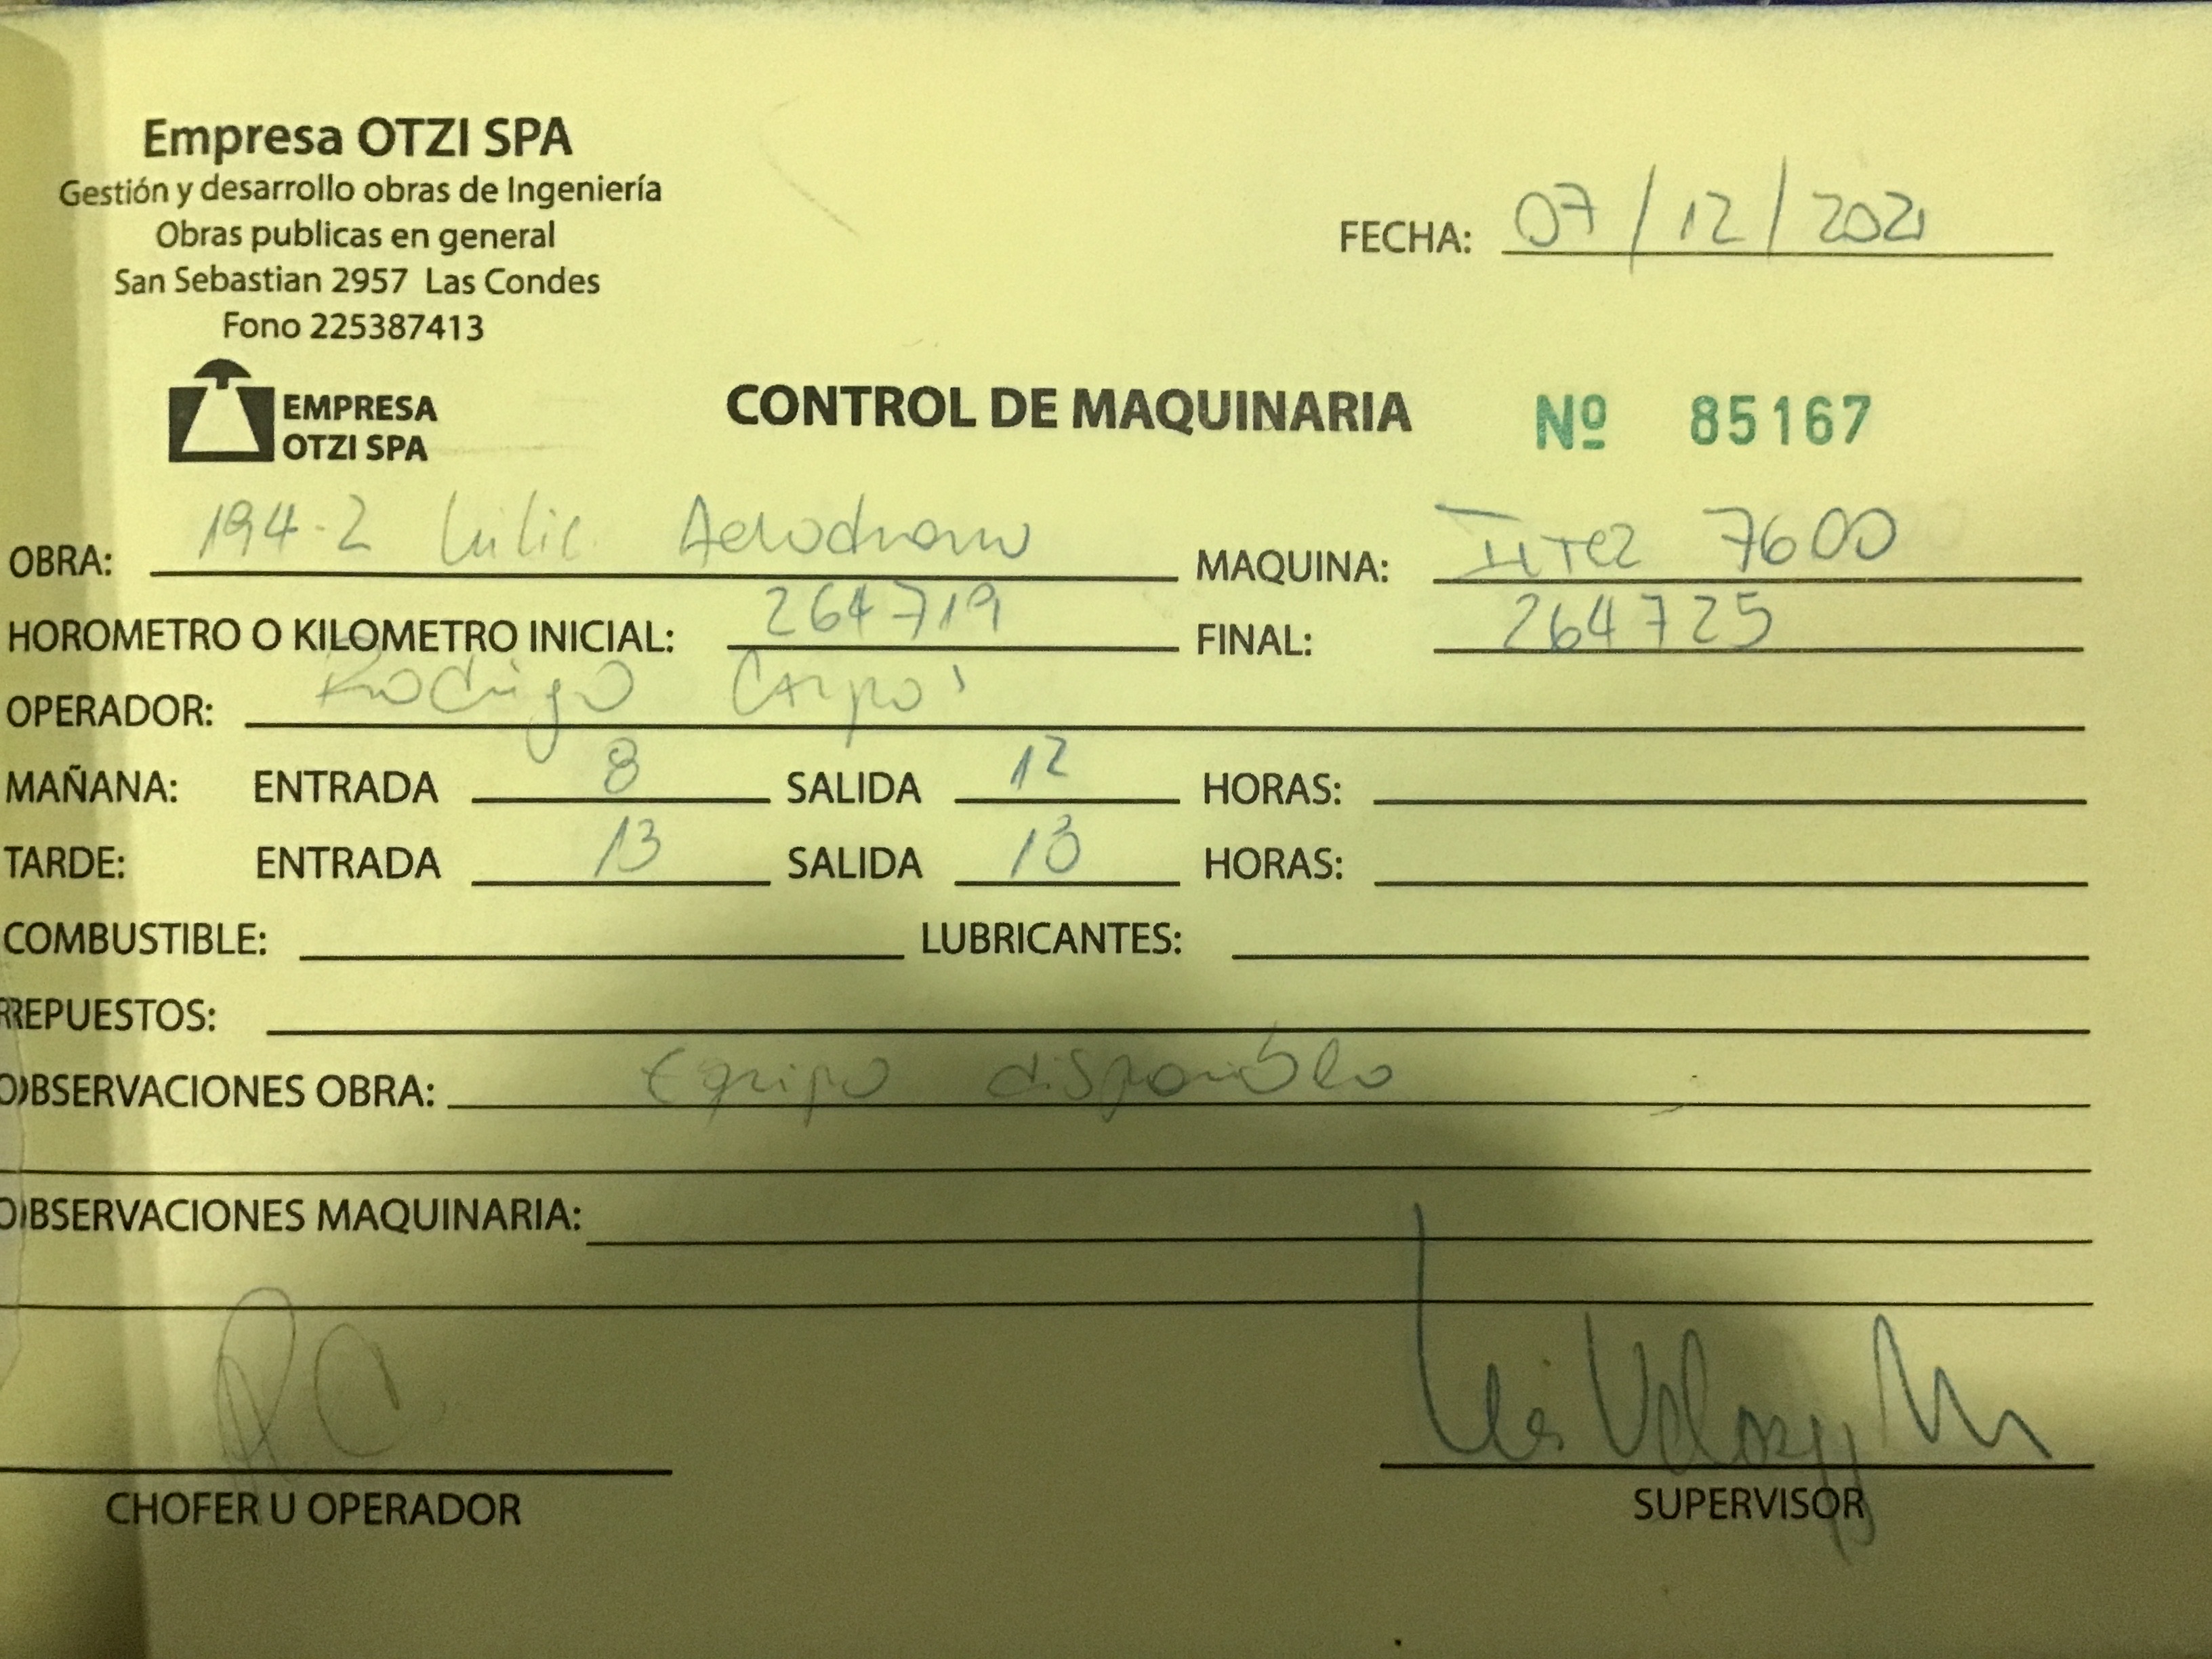 Empresa OTZI SPA
Gestión y desarrollo obras de Ingeniería
Obras publicas en general
San Sebastian 2957 Las Condes
Fono 225387413
FECHA: 07/12/2021
EMPRESA
OTZI SPA
CONTROL DE MAQUINARIA Nº 85167
OBRA: 194-2 Aerodromo MAQUINA: 7600
HOROMETRO O KILOMETRO INICIAL: 264719 FINAL: 264725
OPERADOR: Rodrigo Campo
MAÑANA: ENTRADA 8 SALIDA 12 HORAS:
TARDE: ENTRADA 13 SALIDA 18 HORAS:
COMBUSTIBLE: LUBRICANTES:
REPUESTOS:
OBSERVACIONES OBRA: Equipo disponible
OBSERVACIONES MAQUINARIA:
CHOFER U OPERADOR SUPERVISOR